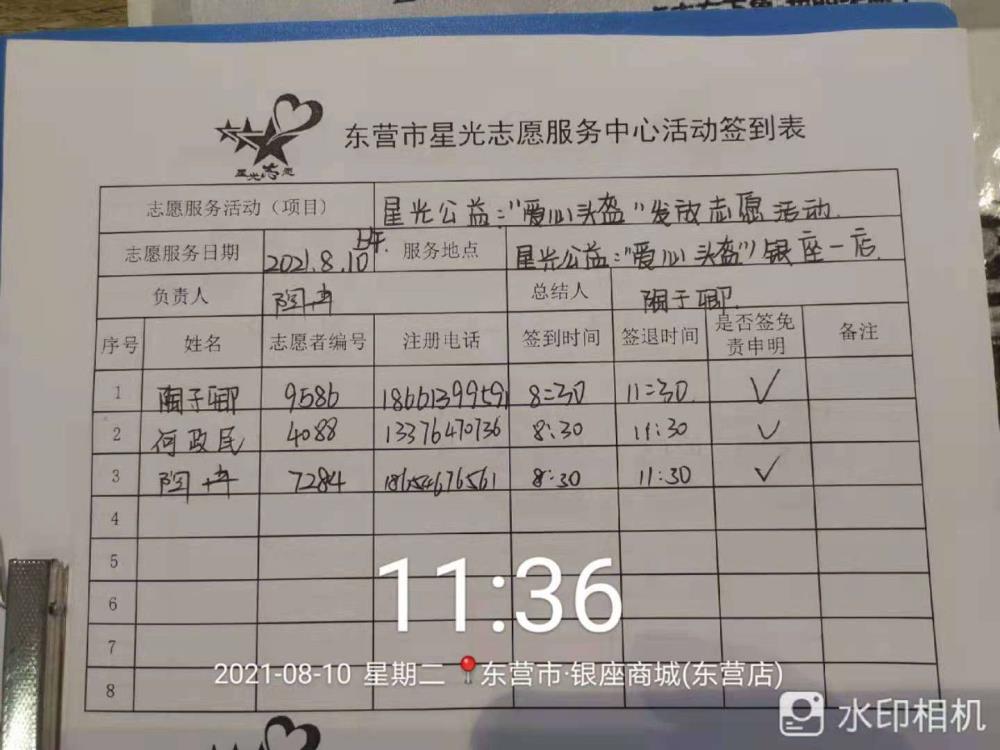 星光志愿
东营市星光志愿服务中心活动签到表
志愿服务活动（项目） 星光公益："爱心头盔"发放志愿活动.
志愿服务日期 2021.8.10上午. 服务地点 星光公益："爱心头盔"银座一店.
负责人 总结人
序号 姓名 志愿者编号 注册电话 签到时间 签退时间 是否签免责申明 备注
1 9586 18661399591 8:30 11:30 ✓
2 何政民 4088 13376470736 8:30 11:30 ✓
3 7284 18654676561 8:30 11:30 ✓
4
5
6
7
8
11:36
2021-08-10 星期二 东营市·银座商城(东营店)
水印相机